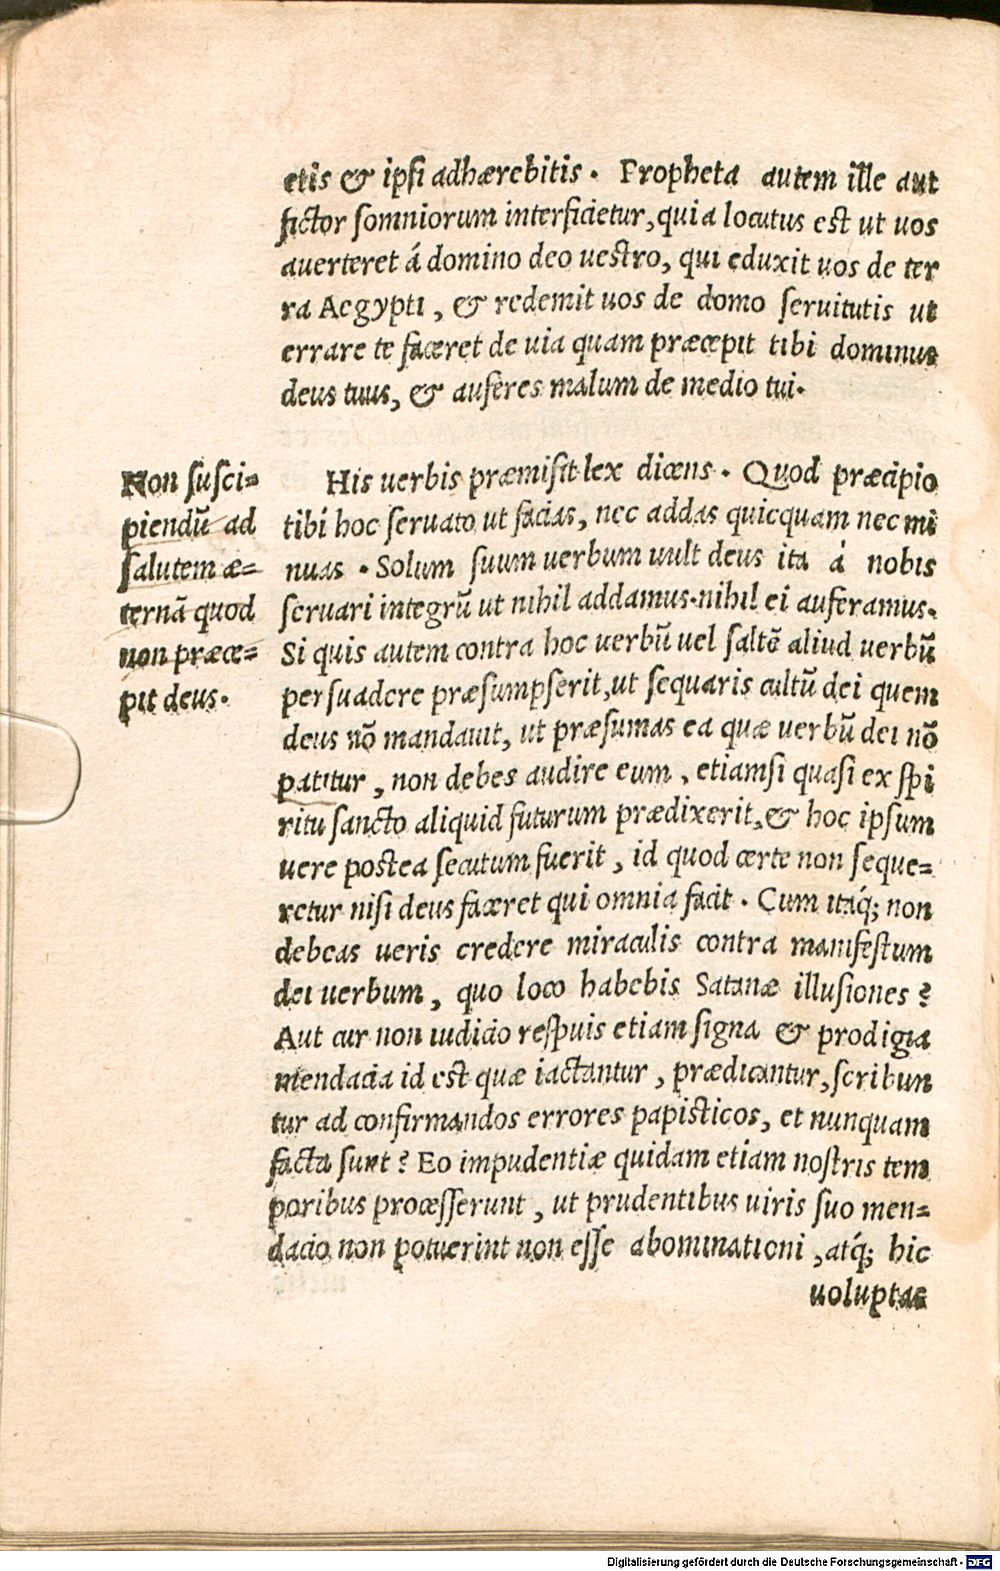 etis & ipsi adhærebitis. Propheta autem ille aut
fictor somniorum interficietur, quia locutus est ut uos
auerteret á domino deo uestro, qui eduxit uos de ter
ra Aegypti, & redemit uos de domo seruitutis ut
errare te faceret de uia quam præcepit tibi dominus
deus tuus, & auferes malum de medio tui.
Non susci=
piendũ ad
salutem æ=
ternã quod
non præce=
pit deus.
His uerbis præmisit lex dicens. Quod præcipio
tibi hoc seruato ut facias, nec addas quicquam nec mi
nuas. Solum suum uerbum uult deus ita á nobis
seruari integrũ ut nihil addamus. nihil ei auferamus.
Si quis autem contra hoc uerbũ uel saltē aliud uerbũ
persuadere præsumpserit, ut sequaris cultũ dei quem
deus nō mandauit, ut præsumas ea quæ uerbũ dei nō
patitur, non debes audire eum, etiamsi quasi ex spi
ritu sancto aliquid futurum prædixerit, & hoc ipsum
uere postea secutum fuerit, id quod certe non seque=
retur nisi deus faceret qui omnia facit. Cum itaq́; non
debeas ueris credere miraculis contra manifestum
dei uerbum, quo loco habebis Satanæ illusiones?
Aut cur non iudicio respuis etiam signa & prodigia
mendacia id est quæ iactantur, prædicantur, scribun
tur ad confirmandos errores papisticos, et nunquam
facta sunt? Eo impudentiæ quidam etiam nostris tem
poribus processerunt, ut prudentibus uiris suo men=
dacio non potuerint non esse abominationi, atq́; hic
uoluptas
Digitalisierung gefördert durch die Deutsche Forschungsgemeinschaft - DFG